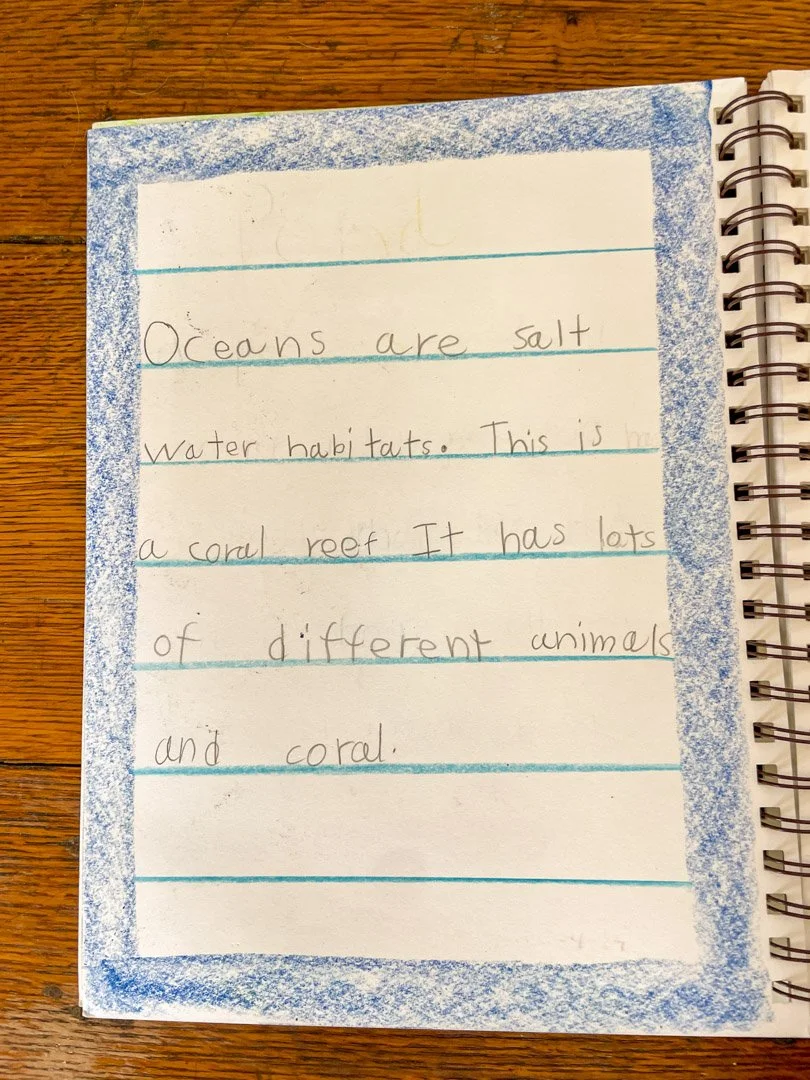 Oceans are salt
water habitats. This is
a coral reef It has lots
of different animals
and coral.